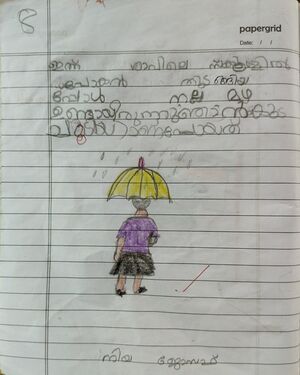 8
papergrid
Date: / /
ഇന്ന് രാവിലെ സ്കൂളിൽ
പോകാൻ തുടങ്ങിയ
പ്പോൾ നല്ല മഴ
ഉണ്ടായിരുന്നു ഞാൻ കുട
ചൂടിയാണ് പോയത്
നിയ